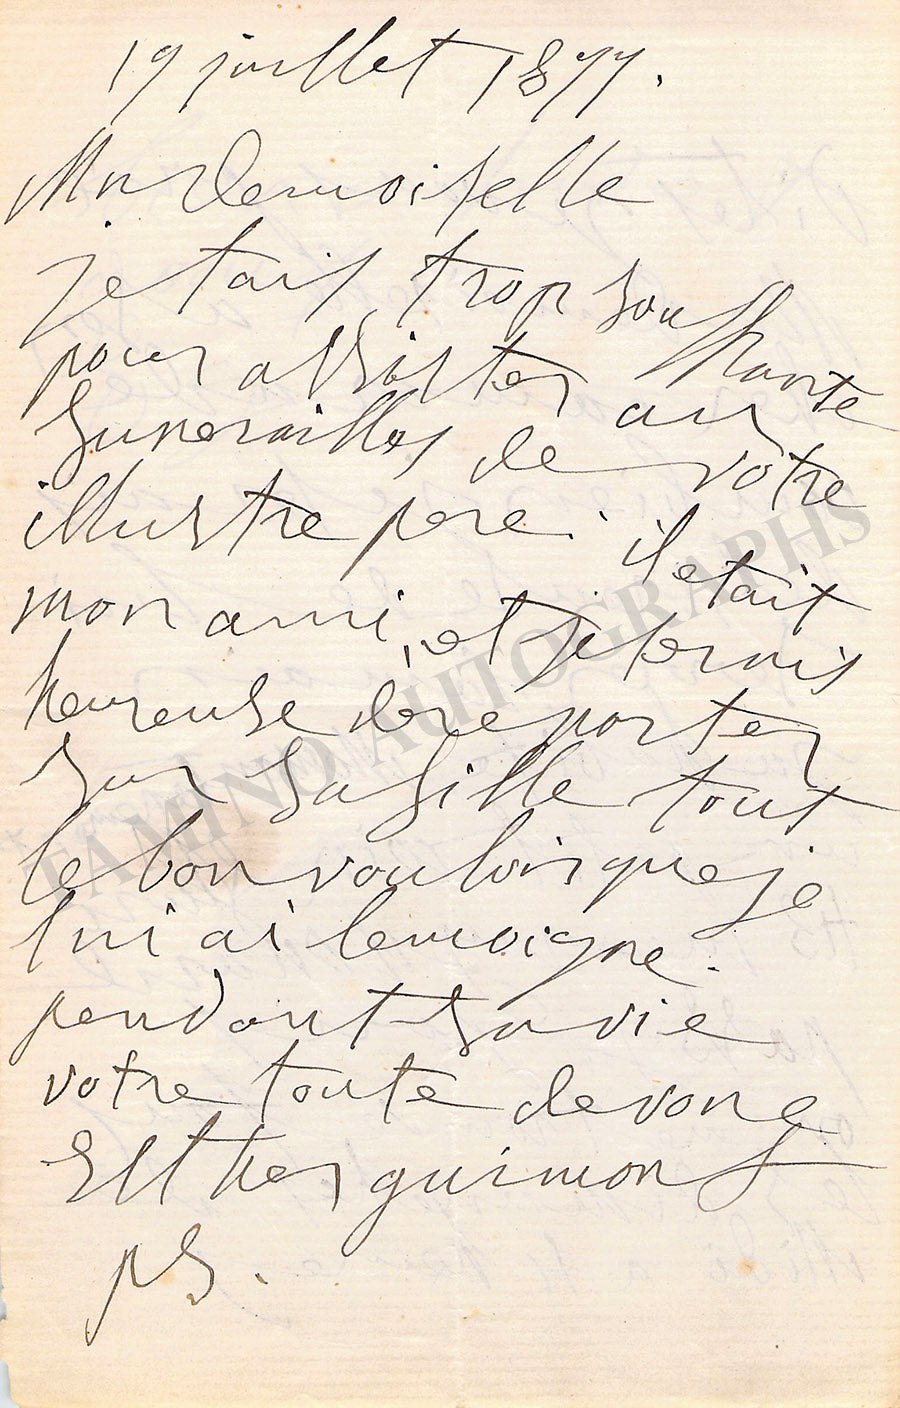 19 juillet 1877.
Mademoiselle
jetais trop souffrante
pour assister aux
funerailles de votre
illustre pere. il etait
mon ami, et je serais
heureuse de reporter
sur sa fille tout
le bon vouloir que je
lui ai temoigne.
pendant sa vie
votre toute devoue
Esther guimont
ps.
TAMINO AUTOGRAPHS